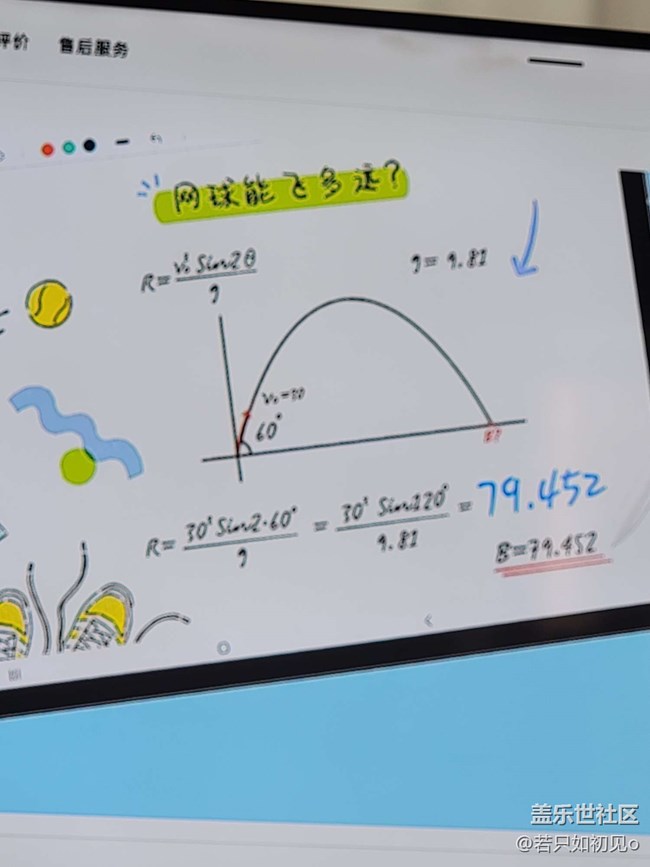 评价 售后服务
网球能飞多远?
R= v₀² Sin2θ / g
g= 9.81
v₀=30
60°
R= 30² Sin2·60° / g = 30² Sin120° / 9.81 = 79.452
B=79.452
盖乐世社区
@若只如初见o